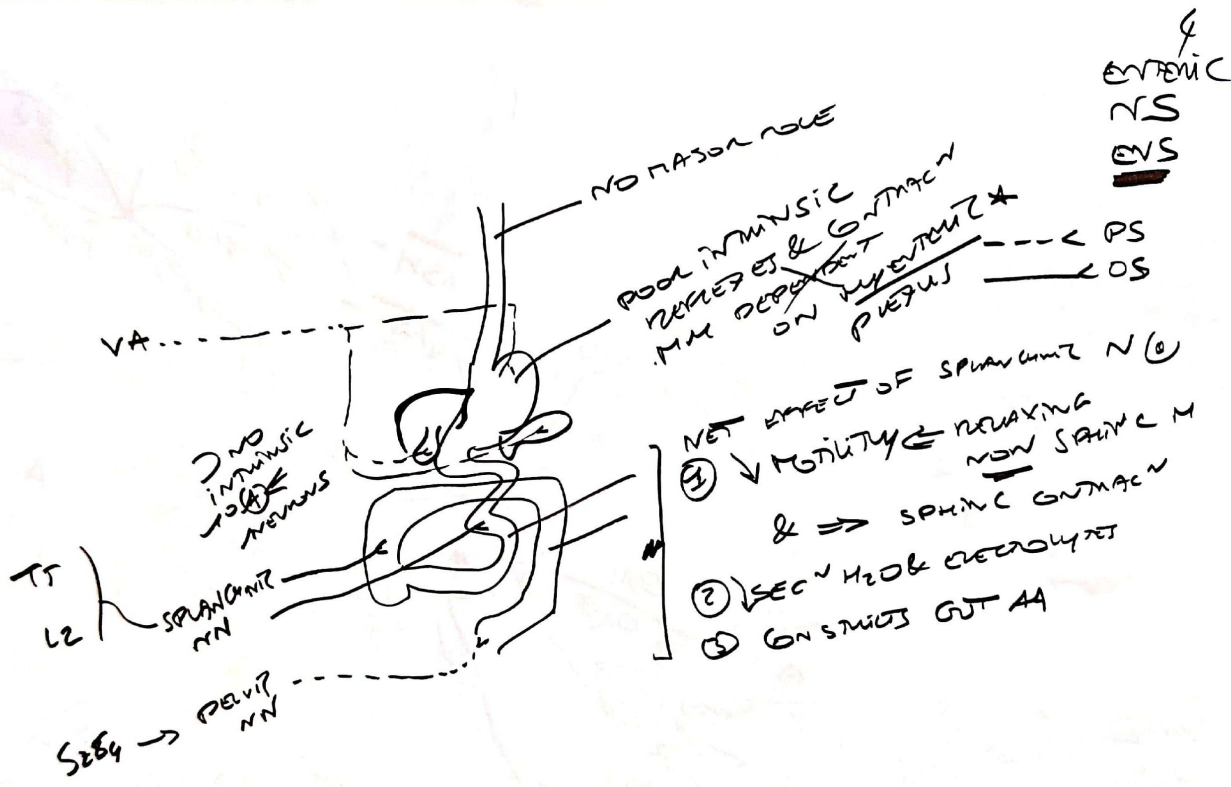 ENTERIC
NS
ENS
NO MAJOR ROLE
POOR INTRINSIC
REFLEXES & CONTRACᴺ
MM DEPENDENT
ON MYENTERIC *
PLEXUS
PS
OS
VA
NO
INTRINSIC
NEURONS
NET EFFECT OF SPLANCHNIC N
① ↓ MOTILITY ⇐ RELAXING
NON SPHINC M
& ⇒ SPHINC CONTRACᴺ
② ↓ SECᴺ H2O & ELECTROLYTES
③ CONSTRICTS GUT AA
T5
L2
SPLANCHNIC
NN
PELVIC
NN
S2&4 →